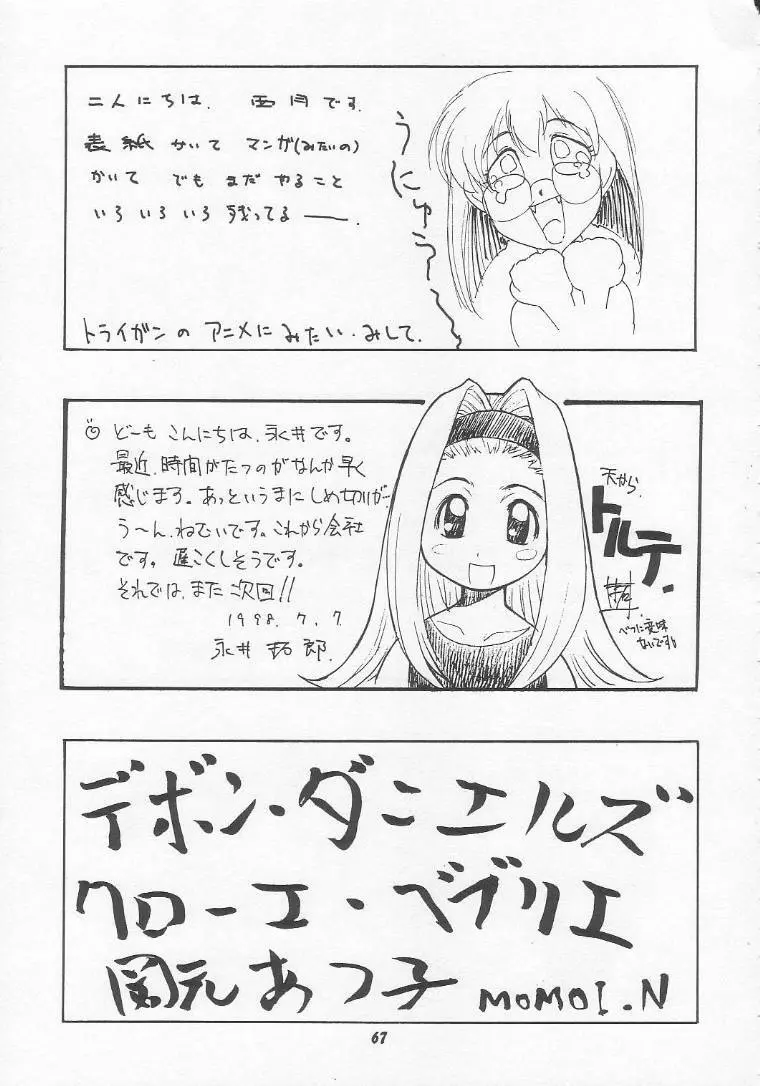 こんにちは、西月です。
表紙かいて マンガ(みたいの)
かいて でも まだ やること
いろ いろ いろ 残ってる――.
うにゅう〜
トライガンの アニメに みたい・みして.
どーも こんにちは、永井です。
最近、時間がたつのがなんか早く
感じます。あっというまに しめ切りが…
う〜ん、ねむいです。これから会社
です。遅こくしそうです。
それでは、また 次回!!
1998.7.7
永井 拓郎.
天から
トルテ.
べつに意味
ないです
デボン・ダニエルズ
クローエ・ベブリエ
関元あつ子 MOMOI.N
67